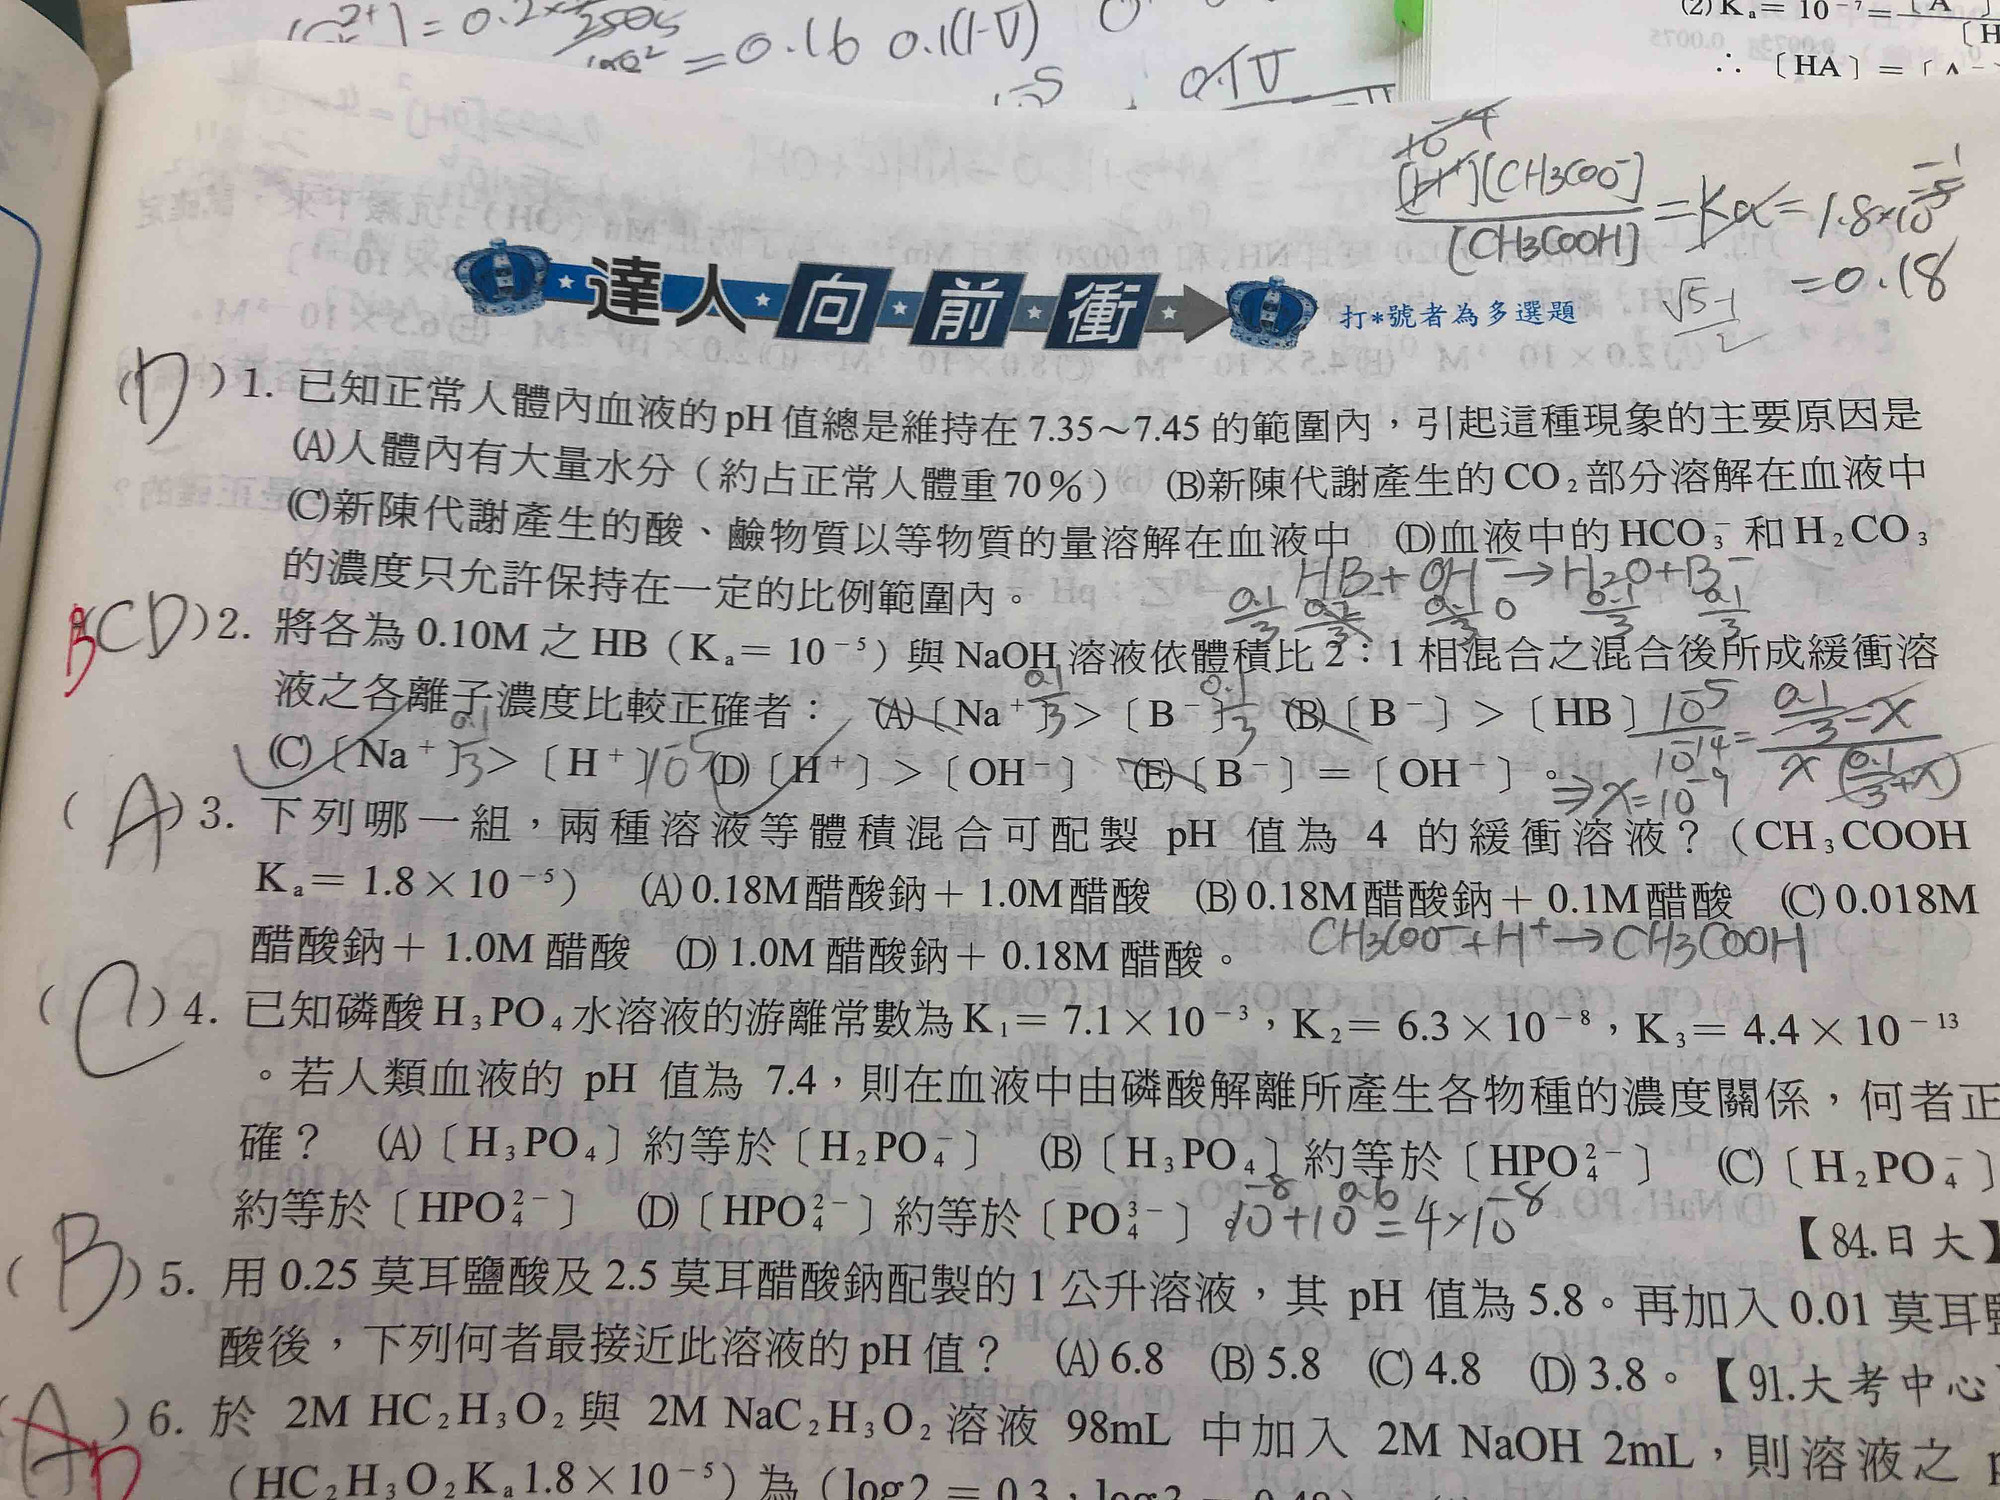 =0.2×
=0.16 0.1(1-V)
0.1V
(2)Kₐ= 10⁻⁷=
∴ 〔HA〕=〔A⁻
10⁻⁴
[H⁺][CH3COO⁻]
[CH3COOH]
=Ka=1.8×10⁻⁵
=0.18
√5-1
2
達人向前衝
打*號者為多選題
(D)1. 已知正常人體內血液的pH值總是維持在7.35～7.45的範圍內，引起這種現象的主要原因是
(A)人體內有大量水分（約占正常人體重70%） (B)新陳代謝產生的CO₂部分溶解在血液中
(C)新陳代謝產生的酸、鹼物質以等物質的量溶解在血液中 (D)血液中的HCO₃⁻和H₂CO₃
的濃度只允許保持在一定的比例範圍內。
HB+OH⁻→H2O+B⁻
B(CD)2. 將各為0.10M之HB（Kₐ= 10⁻⁵）與NaOH溶液依體積比2：1相混合之混合後所成緩衝溶
液之各離子濃度比較正確者： (A)〔Na⁺〕>〔B⁻〕 (B)〔B⁻〕>〔HB〕
(C)〔Na⁺〕>〔H⁺〕10⁻⁵ (D)〔H⁺〕>〔OH⁻〕 (E)〔B⁻〕=〔OH⁻〕。
⇒x=10⁻⁹
(A)3. 下列哪一組，兩種溶液等體積混合可配製 pH 值為 4 的緩衝溶液？（CH₃COOH
Kₐ= 1.8×10⁻⁵） (A)0.18M醋酸鈉+1.0M醋酸 (B)0.18M醋酸鈉+0.1M醋酸 (C)0.018M
醋酸鈉+ 1.0M醋酸 (D)1.0M醋酸鈉+ 0.18M醋酸。
CH3COO⁻+H⁺→CH3COOH
(C)4. 已知磷酸H₃PO₄水溶液的游離常數為K₁= 7.1×10⁻³，K₂= 6.3×10⁻⁸，K₃= 4.4×10⁻¹³
。若人類血液的 pH 值為 7.4，則在血液中由磷酸解離所產生各物種的濃度關係，何者正
確？ (A)〔H₃PO₄〕約等於〔H₂PO₄⁻〕 (B)〔H₃PO₄〕約等於〔HPO₄²⁻〕 (C)〔H₂PO₄⁻〕
約等於〔HPO₄²⁻〕 (D)〔HPO₄²⁻〕約等於〔PO₄³⁻〕。
10⁻⁸+10^0.6=4×10⁻⁸
【84.日大】
(B)5. 用0.25莫耳鹽酸及2.5莫耳醋酸鈉配製的1公升溶液，其 pH 值為5.8。再加入0.01莫耳鹽
酸後，下列何者最接近此溶液的pH值？ (A)6.8 (B)5.8 (C)4.8 (D)3.8。【91.大考中心】
(A)D 6. 於 2M HC₂H₃O₂與 2M NaC₂H₃O₂溶液 98mL 中加入 2M NaOH 2mL，則溶液之
（HC₂H₃O₂Kₐ1.8×10⁻⁵）為（log2 = 0.3，